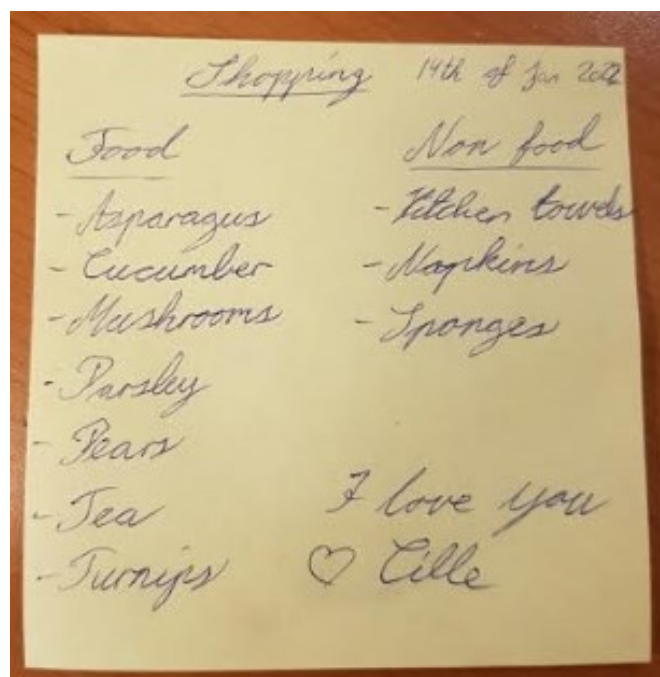 Shopping 14th of Jan 2022
Food
- Asparagus
- Cucumber
- Mushrooms
- Parsley
- Pears
- Tea
- Turnips
Non food
- Kitchen towels
- Napkins
- Sponges
I love you
♡ Cille